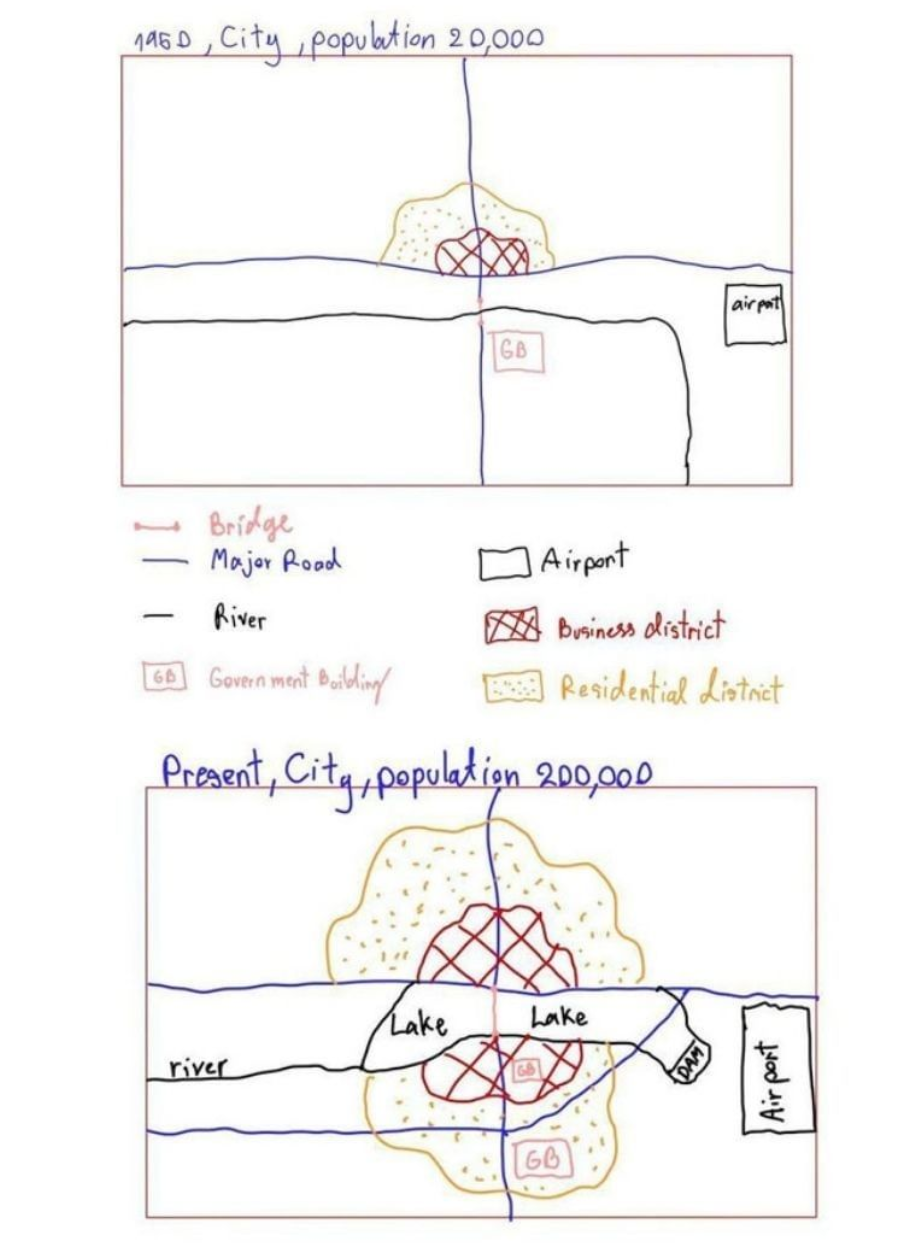 1950, City, population 20,000
airport
GB
Bridge
Major Road
Airport
River
Business district
GB Government Building
Residential district
Present, City, population 200,000
Lake
Lake
river
GB
DAM
Airport
GB